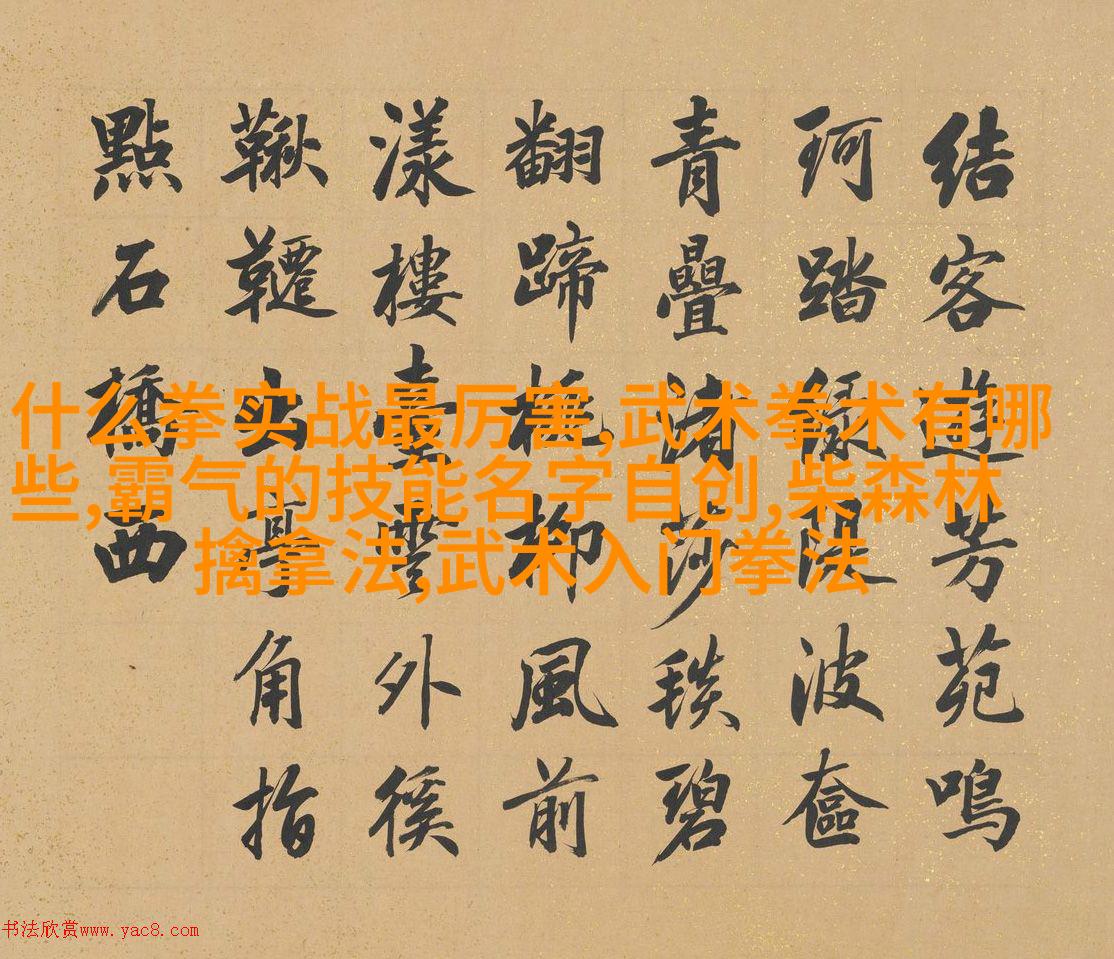 結客遊芳苑鳴
珂踏綠隄波奩
青疊渚莎毯碧
翻蹄桃柳風前
漾樓臺雲外徯
鞦韆出亭角指
點石橋西
什么拳实战最厉害,武术拳术有哪
些,霸气的技能名字自创,柴森林
擒拿法,武术入门拳法
书法欣赏www.yac8.com